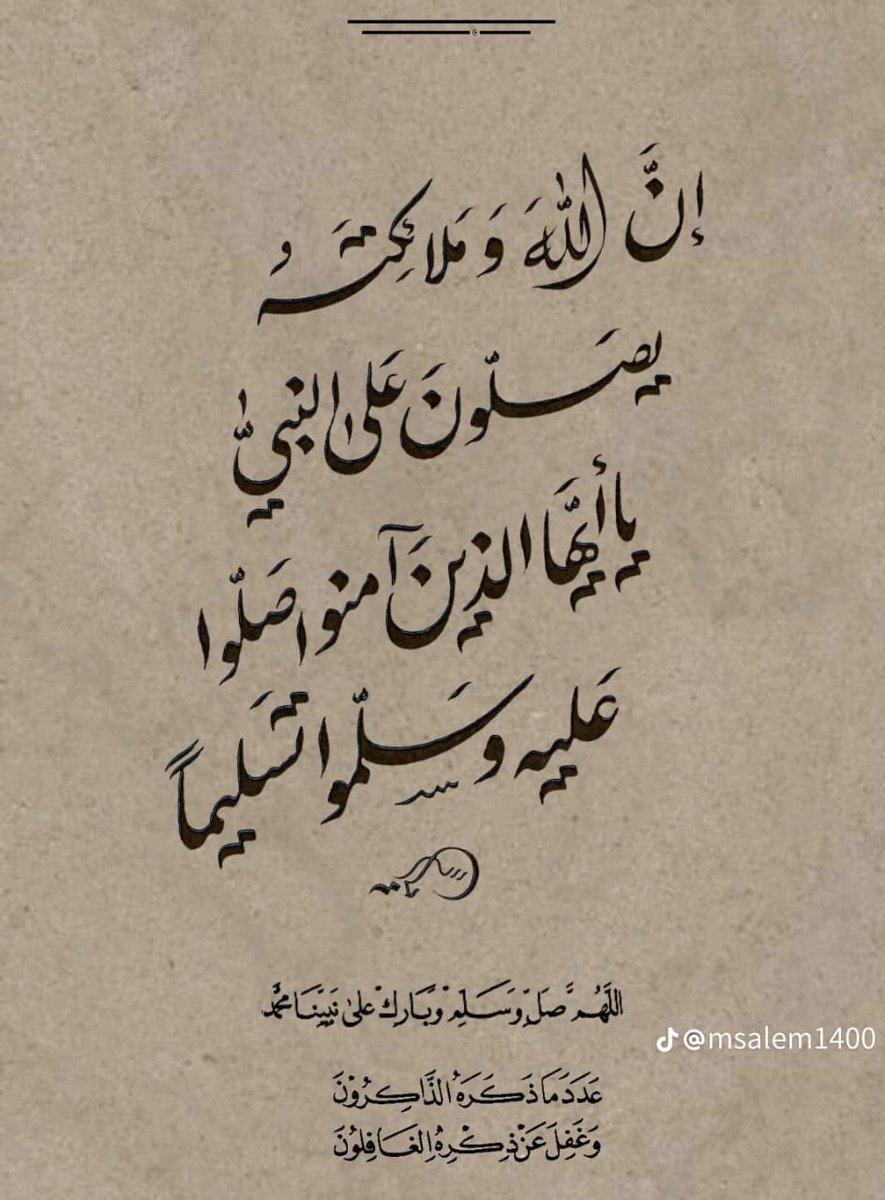 إنَّ اللهَ وَمَلائِكتَهُ
يصَلّونَ عَلىٰ النبيِّ
يا أيّهَا الذينَ آمنوا صَلّوا
عَليه وسَلّموا تسَليماً
اللَّهُمَّ صَلِّ وَسَلِّمْ وَبَارِكْ عَلىٰ نَبِيِّنَا مُحمَّد
@msalem1400
عَدَدَ مَا ذَكَرَهُ الذَّاكِرُوْنَ
وَغَفِلَ عَنْ ذِكْرِهِ الغَافِلُوْنَ